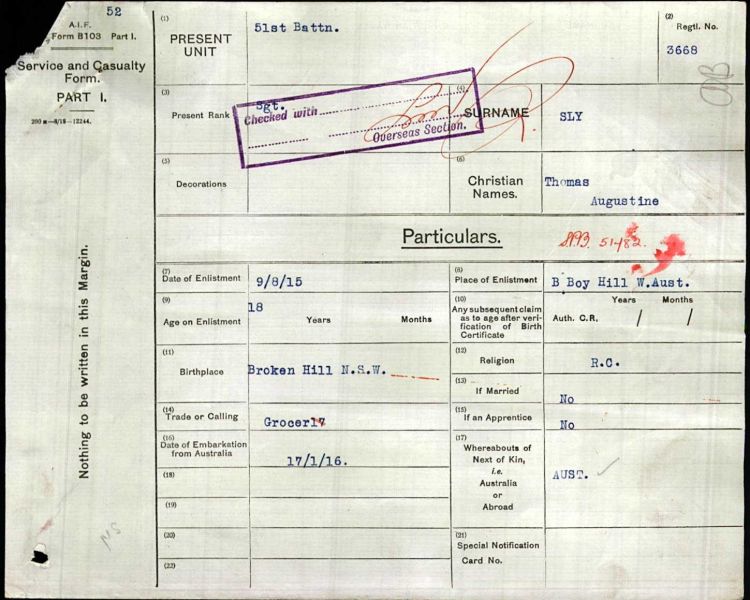 52
A.I.F.
Form B103 Part I.
Service and Casualty
Form.
PART I.
200 m—8/18—12244.
Nothing to be written in this Margin.
(1)
PRESENT
UNIT
51st Battn.
(2)
Regtl. No.
3668
(3)
Present Rank
Sgt.
Checked with
Overseas Section.
(4)
SURNAME
SLY
(5)
Decorations
(6)
Christian
Names.
Thomas
Augustine
Particulars.
51482.
(7)
Date of Enlistment
9/8/15
(8)
Place of Enlistment
B Boy Hill W.Aust.
(9)
Age on Enlistment
18
Years Months
(10)
Any subsequent claim
as to age after veri-
fication of Birth
Certificate
Years Months
Auth. C.R. / /
(11)
Birthplace
Broken Hill N.S.W.
(12)
Religion
R.C.
(13)
If Married
No
(14)
Trade or Calling
Grocer17
(15)
If an Apprentice
No
(16)
Date of Embarkation
from Australia
17/1/16.
(17)
Whereabouts of
Next of Kin,
i.e.
Australia
or
Abroad
AUST.
(18)
(19)
(20)
(21)
Special Notification
Card No.
(22)